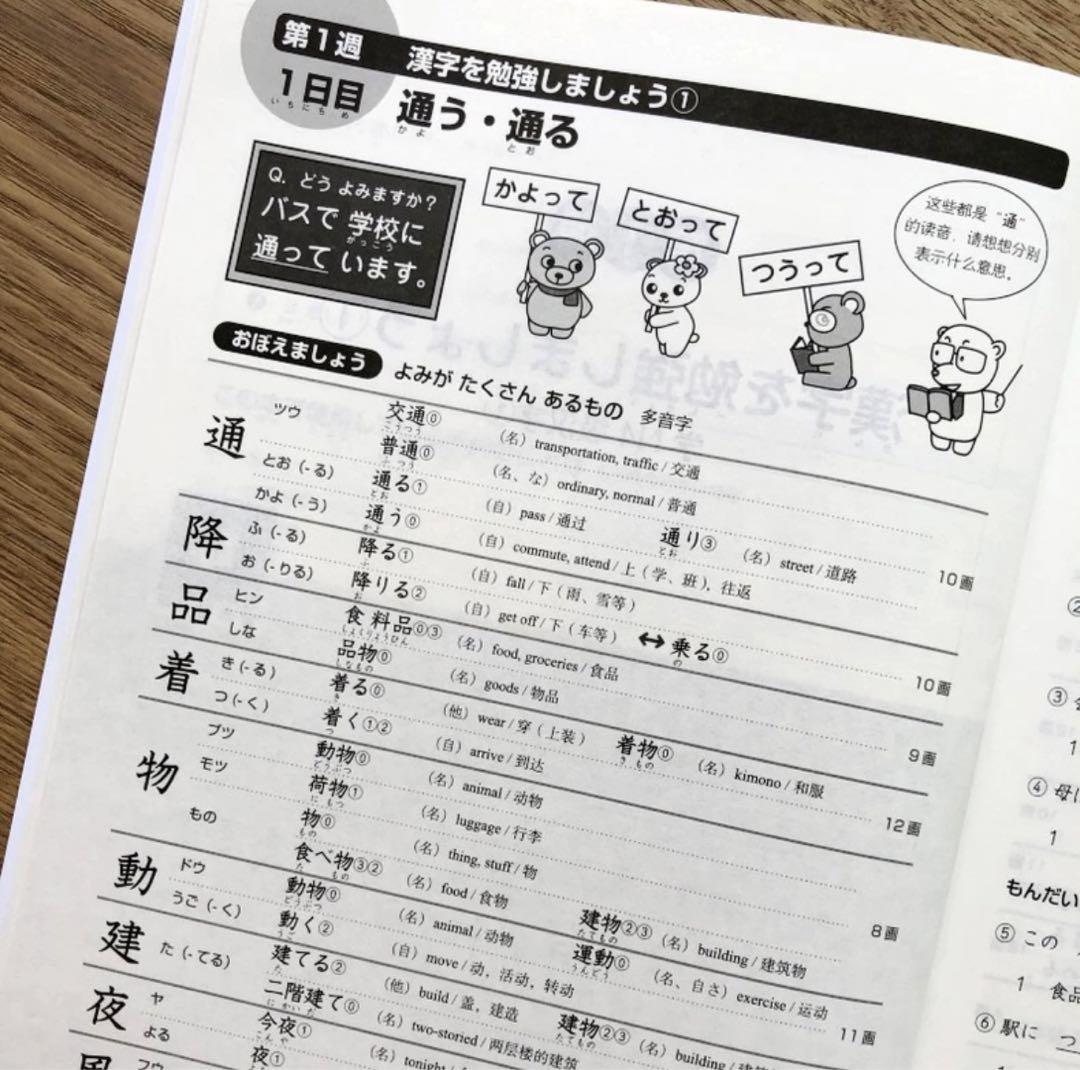 第1週 漢字を勉強しましょう①
1日目 通う・通る
いちにちめ かよ とお
Q. どう よみますか？
バスで 学校に
がっこう
通って います。
かよって
とおって
つうって
这些都是“通”
的读音，请想想分别
表示什么意思。
おぼえましょう よみが たくさん あるもの 多音字
通 ツウ 交通⓪ (名) transportation, traffic / 交通
こうつう
普通⓪ (名、な) ordinary, normal / 普通
ふつう
とお (-る) 通る① (自) pass / 通过 通り③ (名) street / 道路
とお とお
かよ (-う) 通う⓪ (自) commute, attend / 上（学、班），往返 10画
かよ
降 ふ (-る) 降る① (自) fall / 下（雨、雪等）
ふ
お (-りる) 降りる② (自) get off / 下（车等） ↔ 乗る⓪ 10画
お の
品 ヒン 食料品⓪③ (名) food, groceries / 食品
しょくりょうひん
しな 品物⓪ (名) goods / 物品 9画
しなもの
着 き (-る) 着る⓪ (他) wear / 穿（上装） 着物⓪ (名) kimono / 和服
き きもの
つ (-く) 着く①② (自) arrive / 到达 12画
つ
物 ブツ 動物⓪ (名) animal / 动物
どうぶつ
モツ 荷物① (名) luggage / 行李
にもつ
もの 物⓪ (名) thing, stuff / 物
もの
食べ物③② (名) food / 食物 建物②③ (名) building / 建筑物 8画
た もの たてもの
動 ドウ 動物⓪ (名) animal / 动物 運動⓪ (名、自さ) exercise / 运动
どうぶつ うんどう
うご (-く) 動く② (自) move / 动，活动，转动 11画
うご
建 た (-てる) 建てる② (他) build / 盖，建造 建物②③ (名) building /
た たてもの
二階建て⓪ (名) two-storied / 两层楼的建筑
にかいだ
夜 ヤ 今夜① (名) tonight /
こんや
よる 夜①
フウ
③
1
④ 母に
1
もんだい
⑤ この
1 食品
⑥ 駅に つ